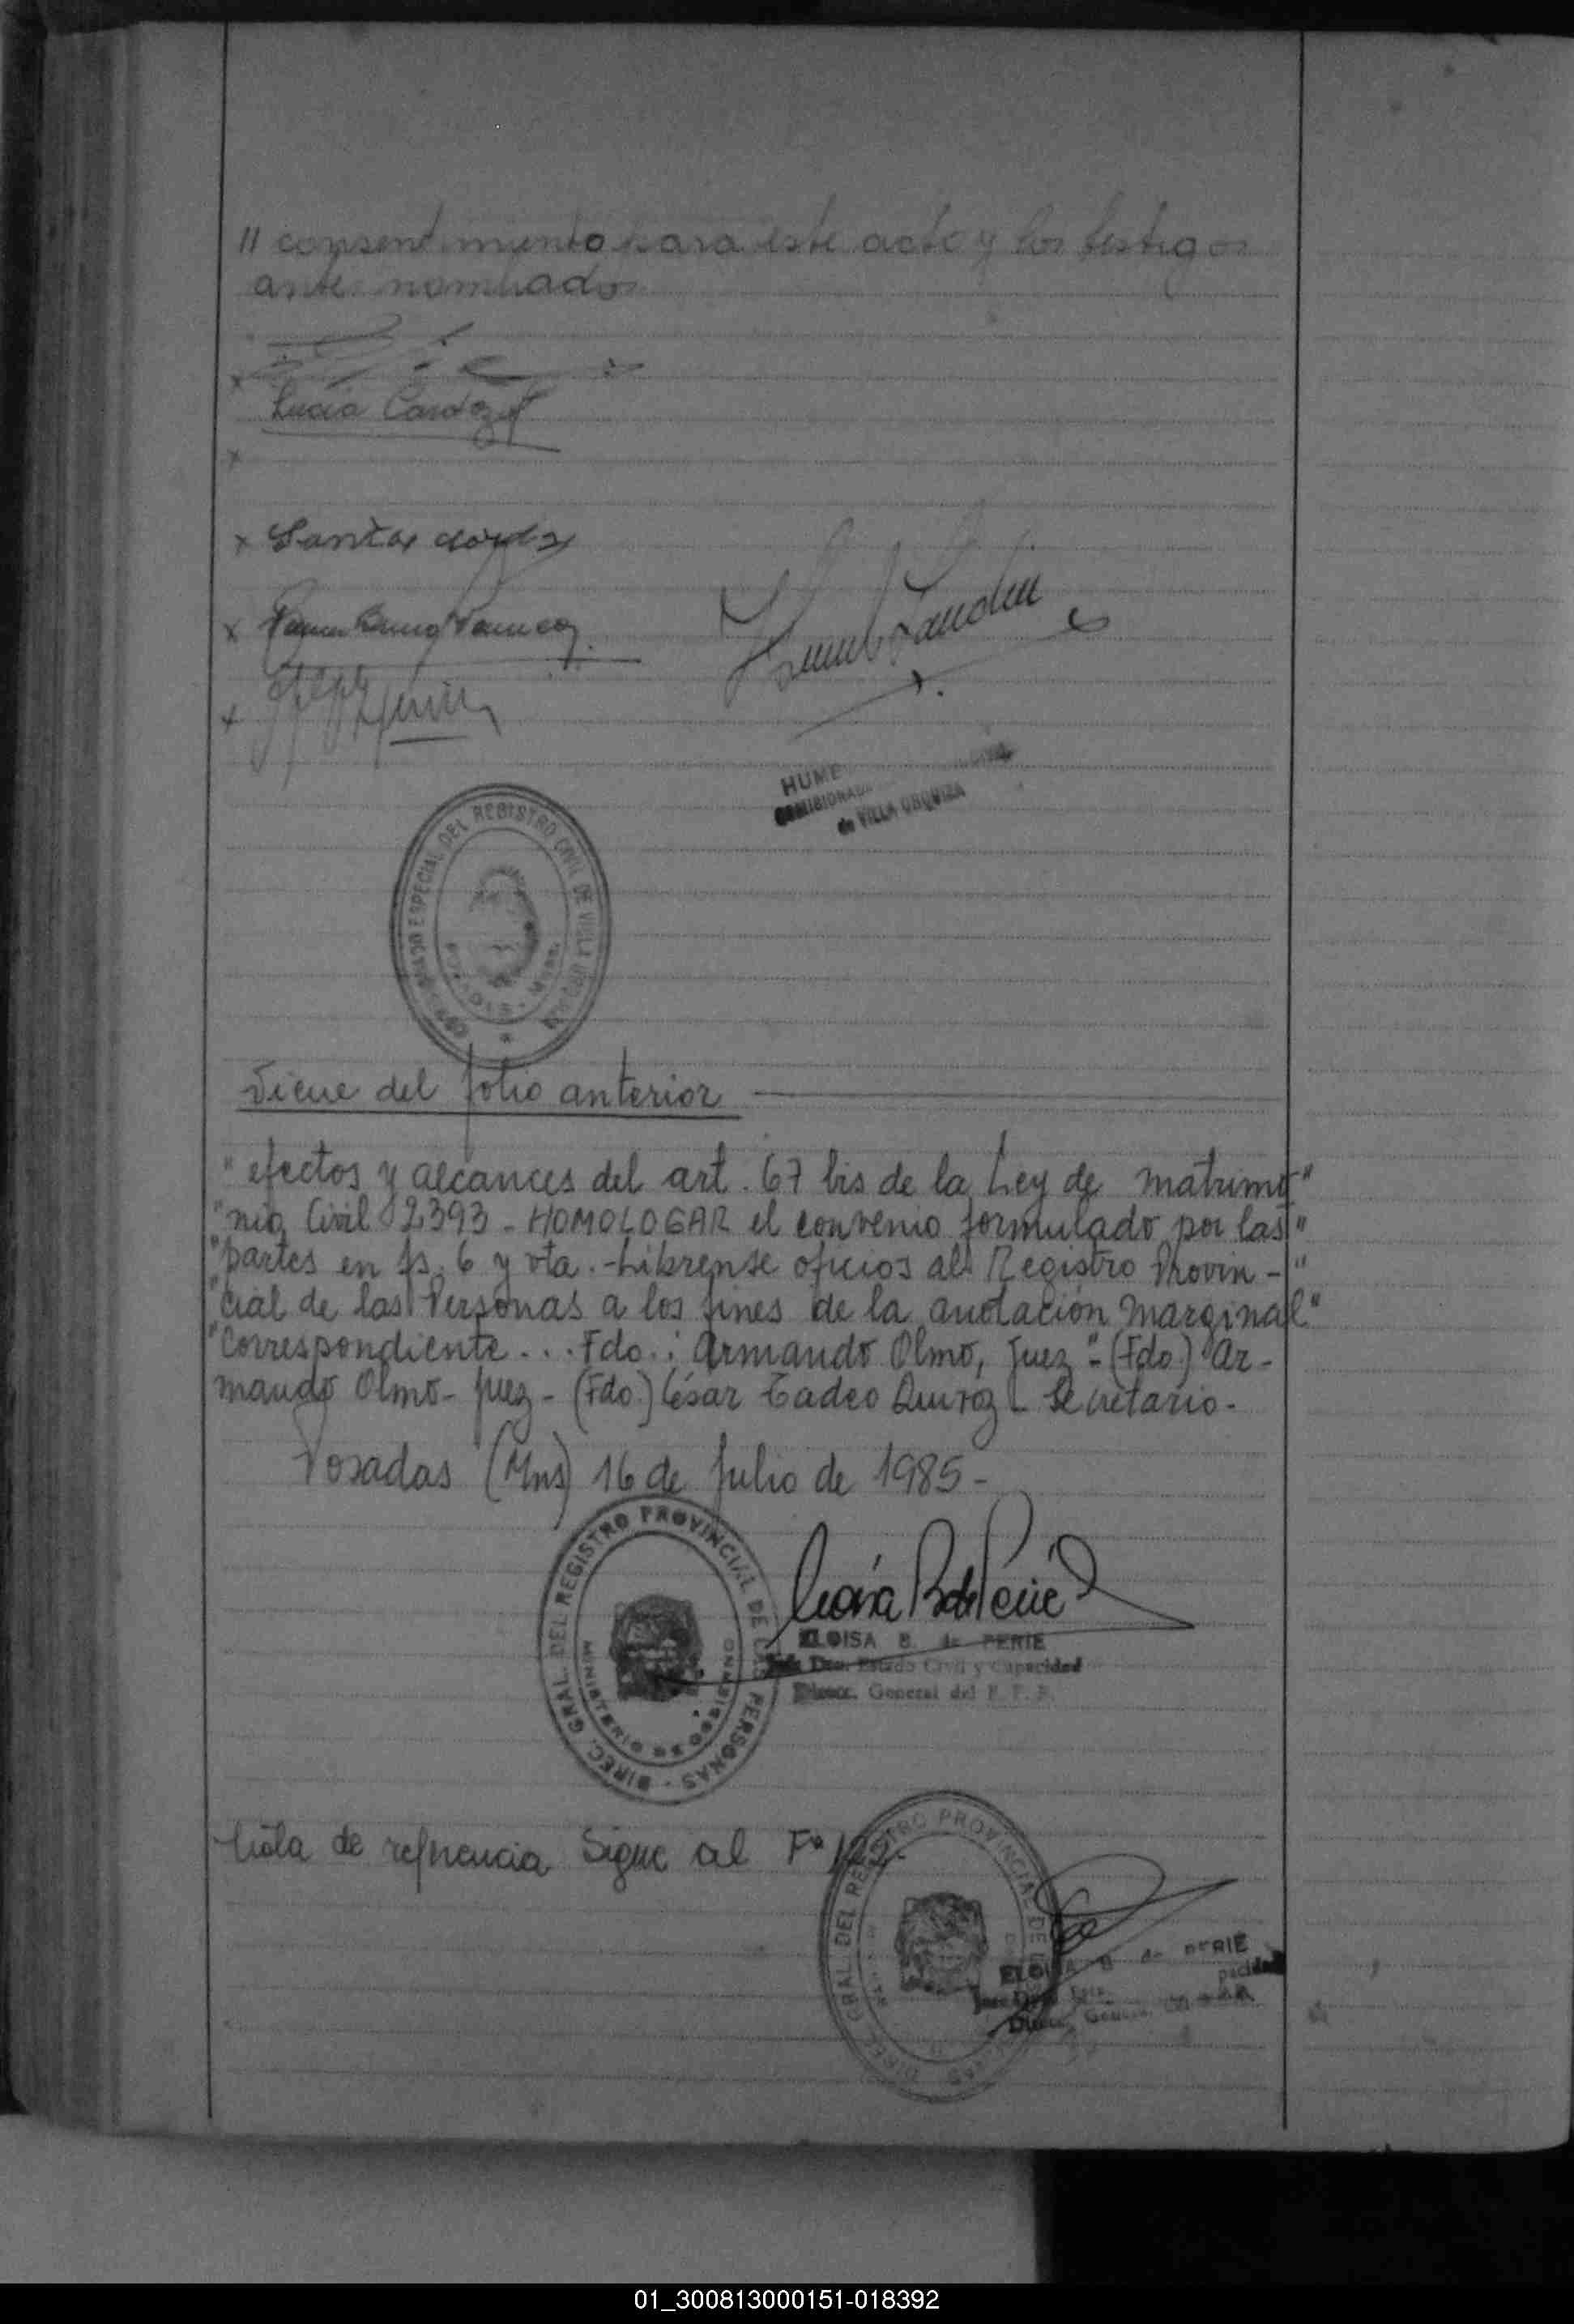 // consentimiento para este acto y los testigos
ante nombrados
Lucía Cardozo
HUME
COMISIONADO
de VILLA URQUIZA
COMISIONADO ESPECIAL DEL REGISTRO CIVIL DE VILLA URQUIZA
POSADAS - MNES.
Viene del folio anterior
" efectos y alcances del art. 67 bis de la Ley de matrimo "
" nio Civil 2393 - HOMOLOGAR el convenio formulado por las "
" partes en fs. 6 y vta. - Líbrense oficios al Registro Provin - "
" cial de las Personas a los fines de la anotación marginal "
" correspondiente . . . Fdo. : Armando Olmo, Juez " - (Fdo.) Ar-
mando Olmo - Juez - (Fdo.) César Tadeo Quiroz - Secretario -
Posadas (Mns) 16 de Julio de 1985 -
DIREC. GRAL. DEL REGISTRO PROVINCIAL DE LAS PERSONAS
MINISTERIO DE GOBIERNO
ELOISA B. de PERIE
Dto. Estado Civil y Capacidad
Direcc. General del R. P. P.
Nota de referencia Sigue al Fº
DIREC. GRAL. DEL REGISTRO PROVINCIAL DE LAS PERSONAS
ELOISA B. de PERIE
01_300813000151-018392